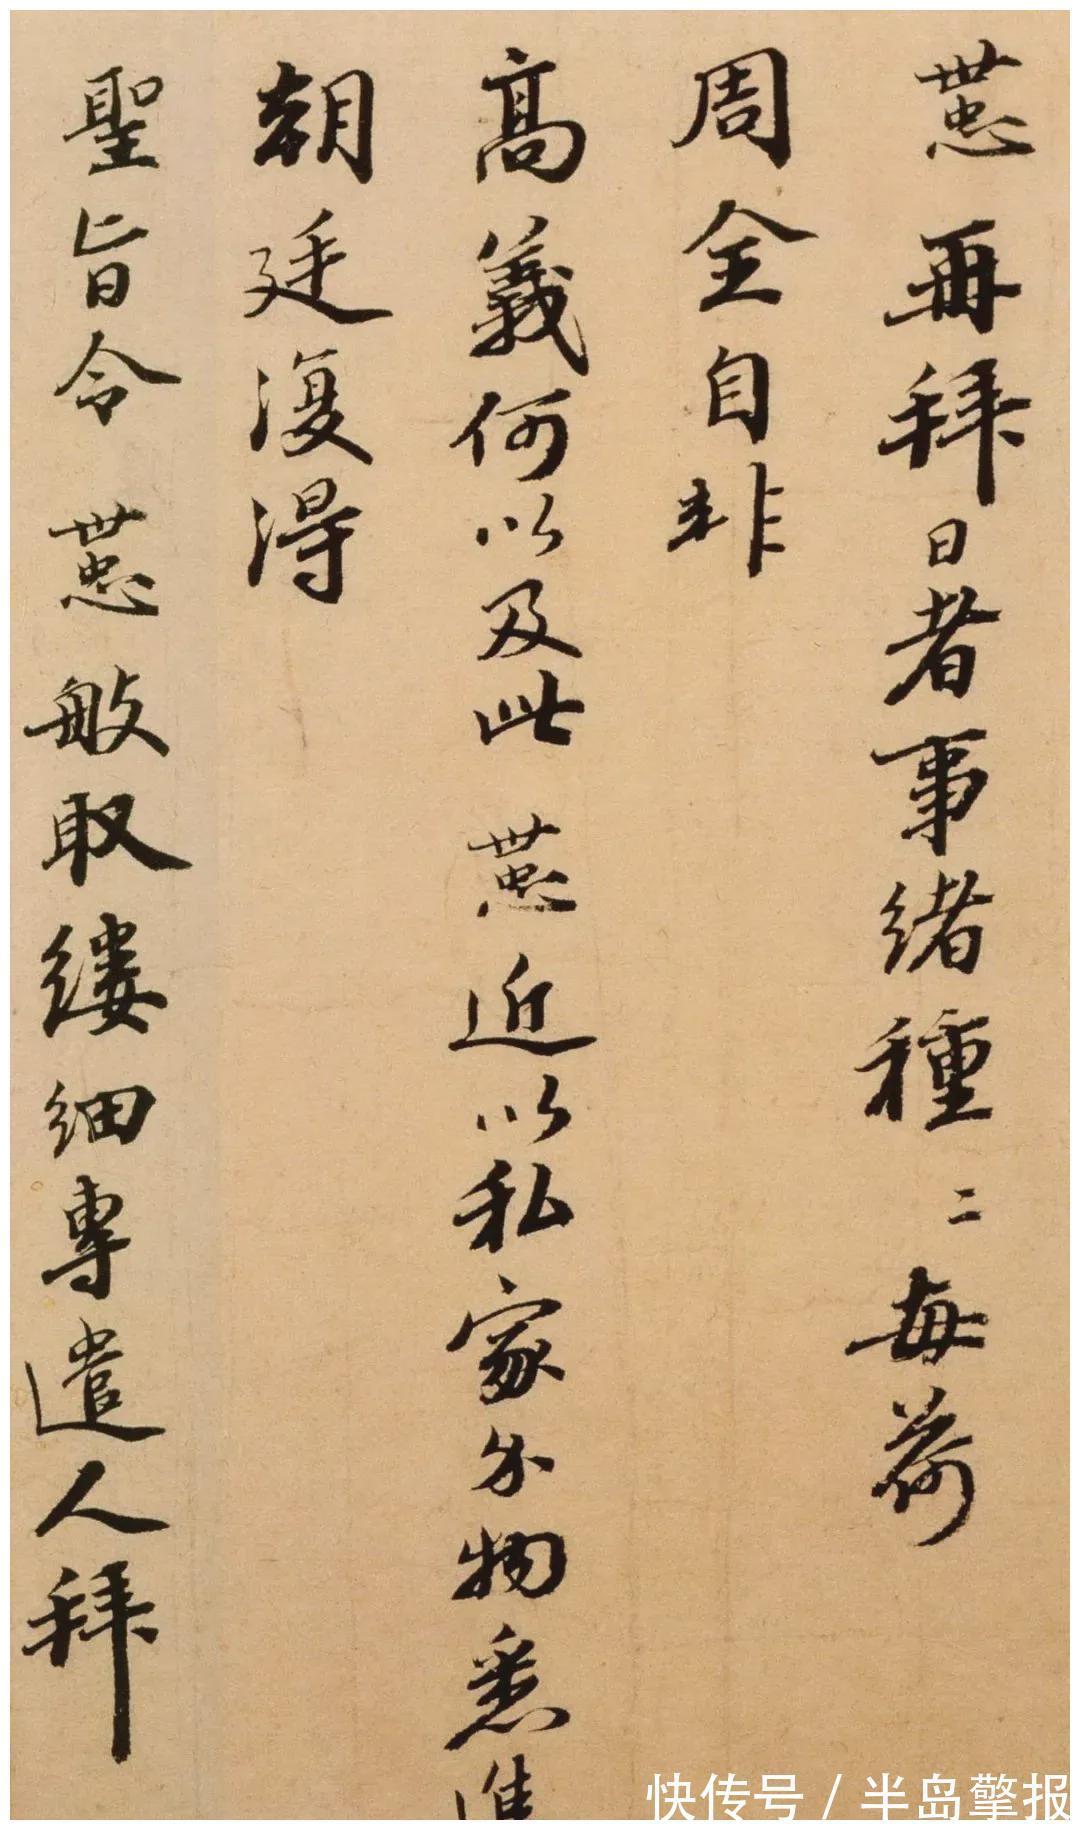 世忠再拜日者事緒種〻每荷
周全自非
高義何以及此世忠近以私家分物悉進
朝廷復得
聖旨令世忠般取縷細專遣人拜
快传号 / 半岛擎报